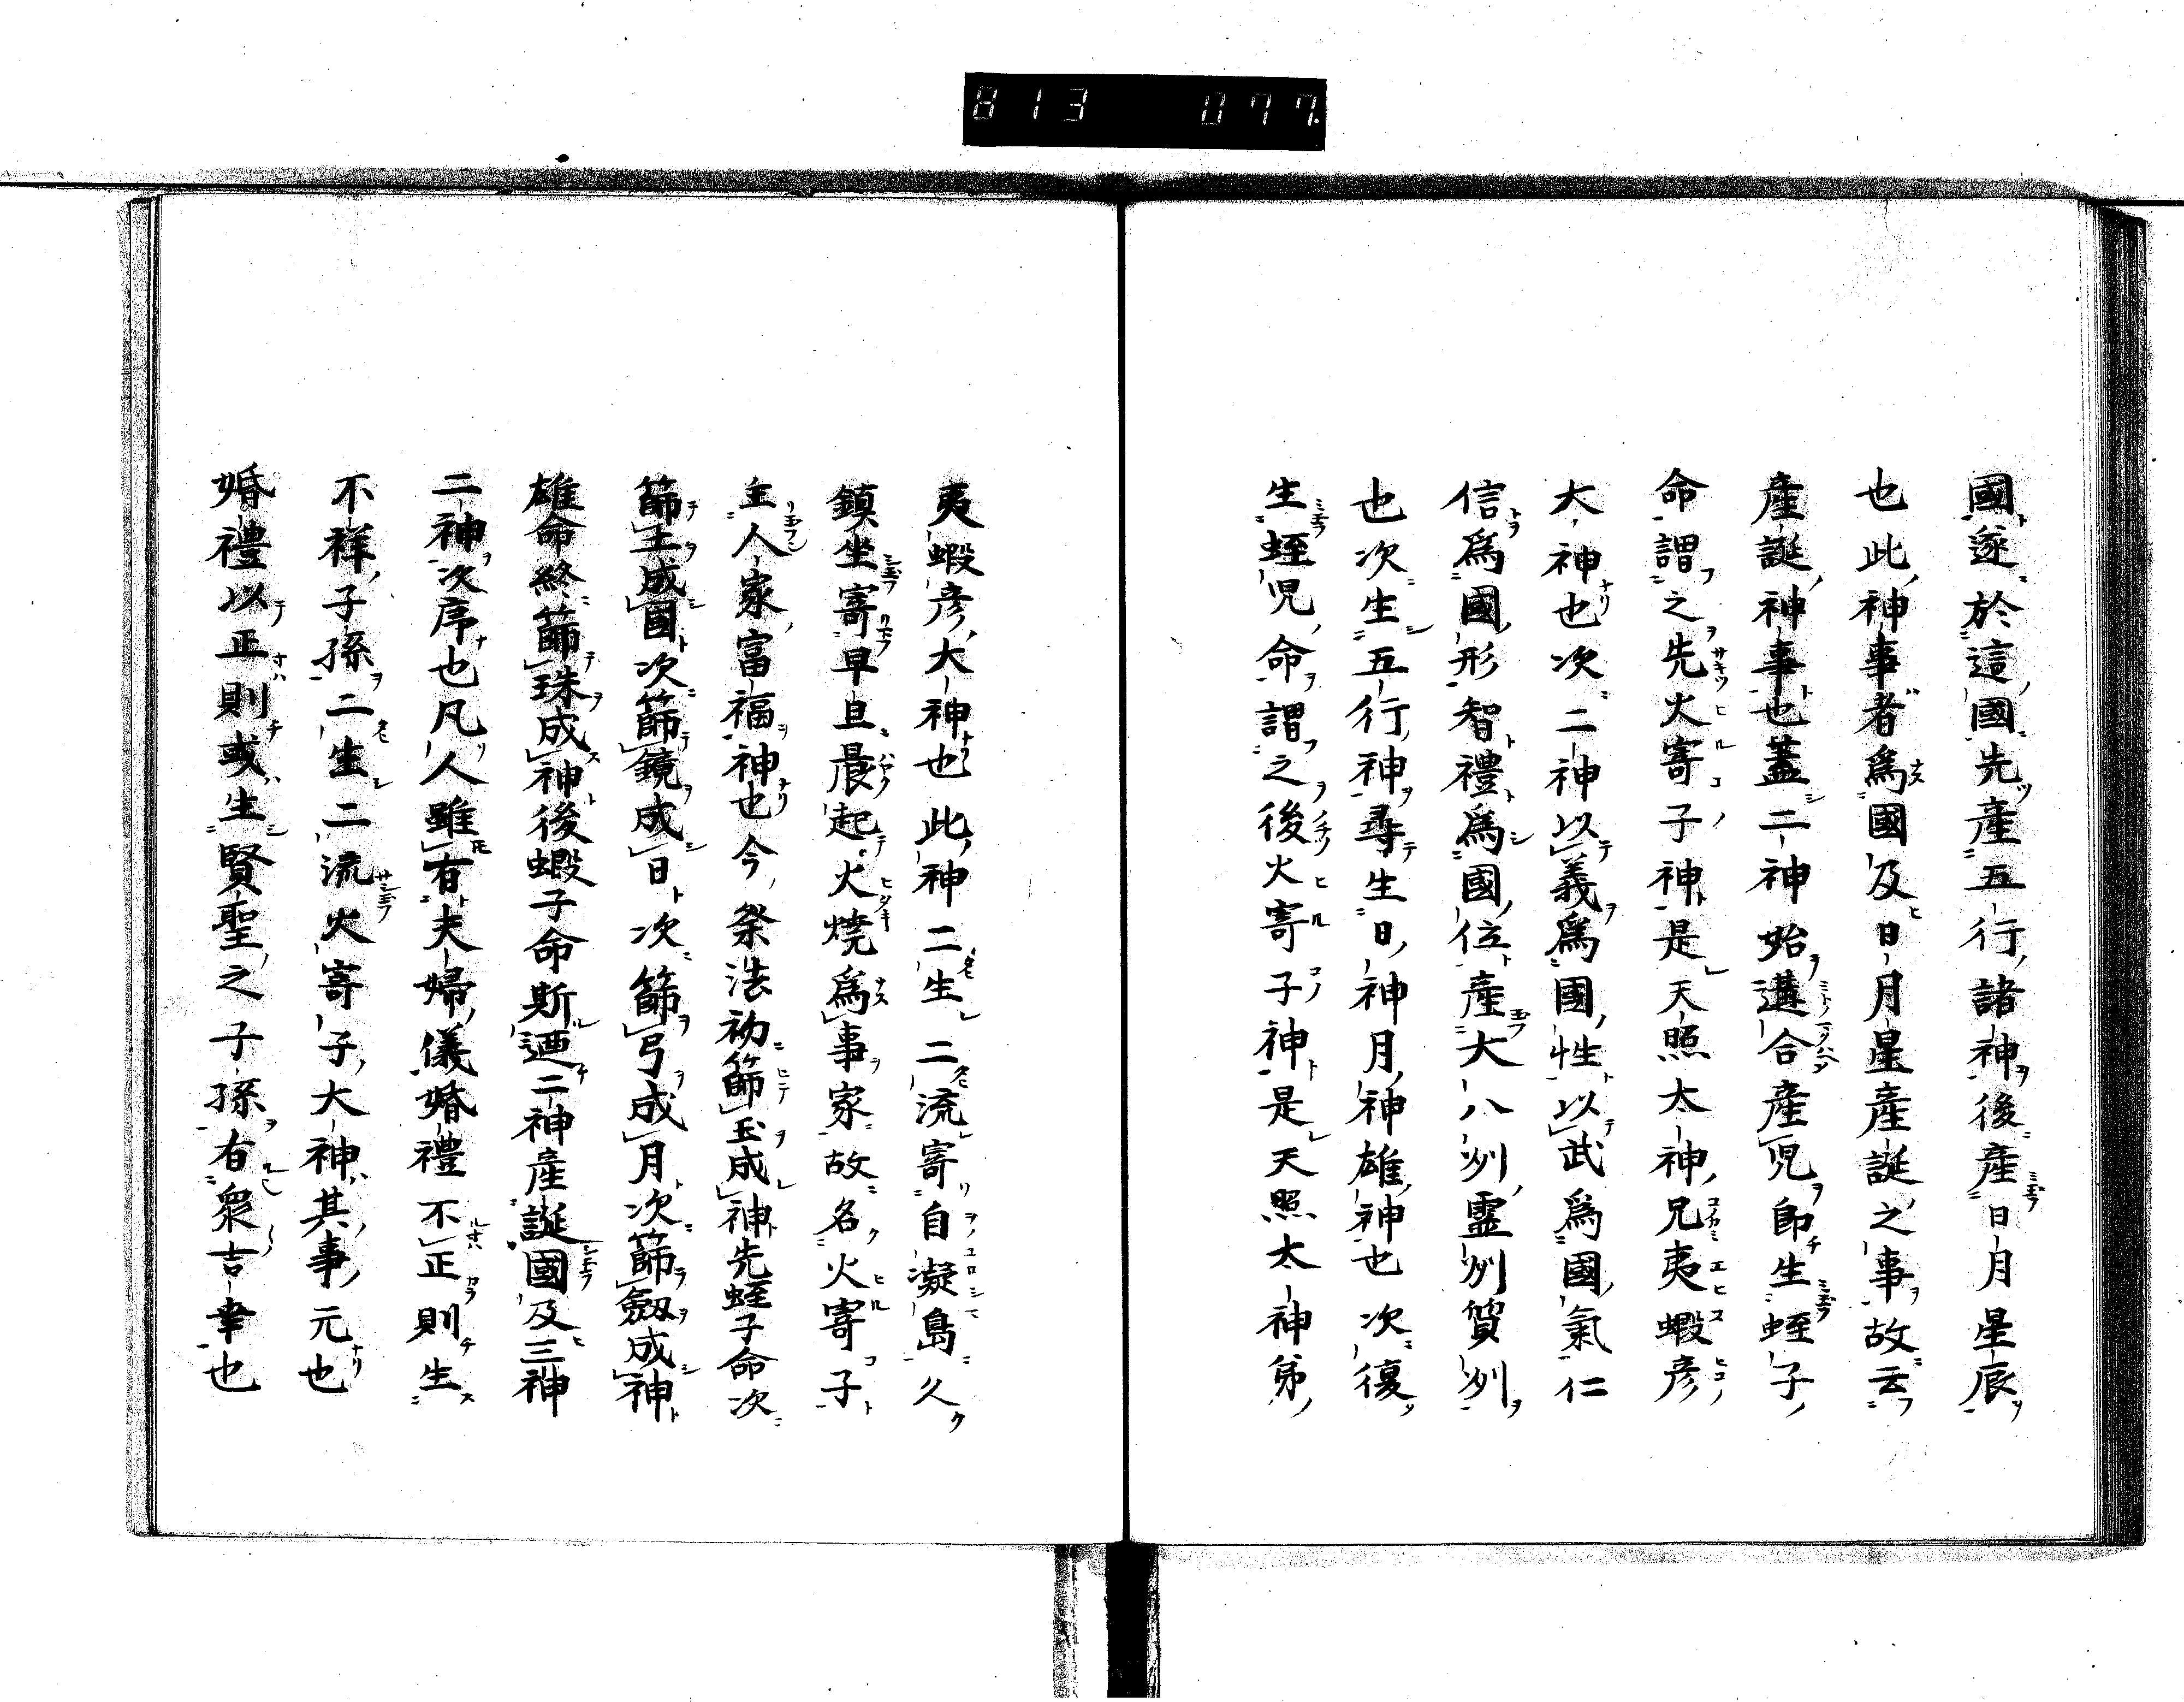 813 077.
國逐於這國先産五行諸神後産日月星辰
也此神事者爲國及日月星産誕之事故云
産誕神事也蓋二神始遘合産児即生蛭子
命謂之先火寄子神是天照太神兄夷蝦彦
大神也次二神以義爲國性以武爲國氣仁
信爲國形智禮爲國位産大八洲靈洲質洲
也次生五行神尋生日神月神雄神也次復
生蛭児命謂之後火寄子神是天照太神弟
夷蝦彦大神也此神二生二流寄自凝島久
鎮坐寄早旦晨起火燒爲事家故名火寄子
主人家富福神也今祭法初篩玉成神先蛭子命次
篩土成國次篩鏡成日次篩弓成月次篩劔成神
雄命終篩珠成神後蝦子命斯迺二神産誕國及三神
二神次序也凡人雖有夫婦儀婚禮不正則生
不祥子孫二生二流火寄子大神其事元也
婚禮以正則或生賢聖之子孫右衆吉幸也